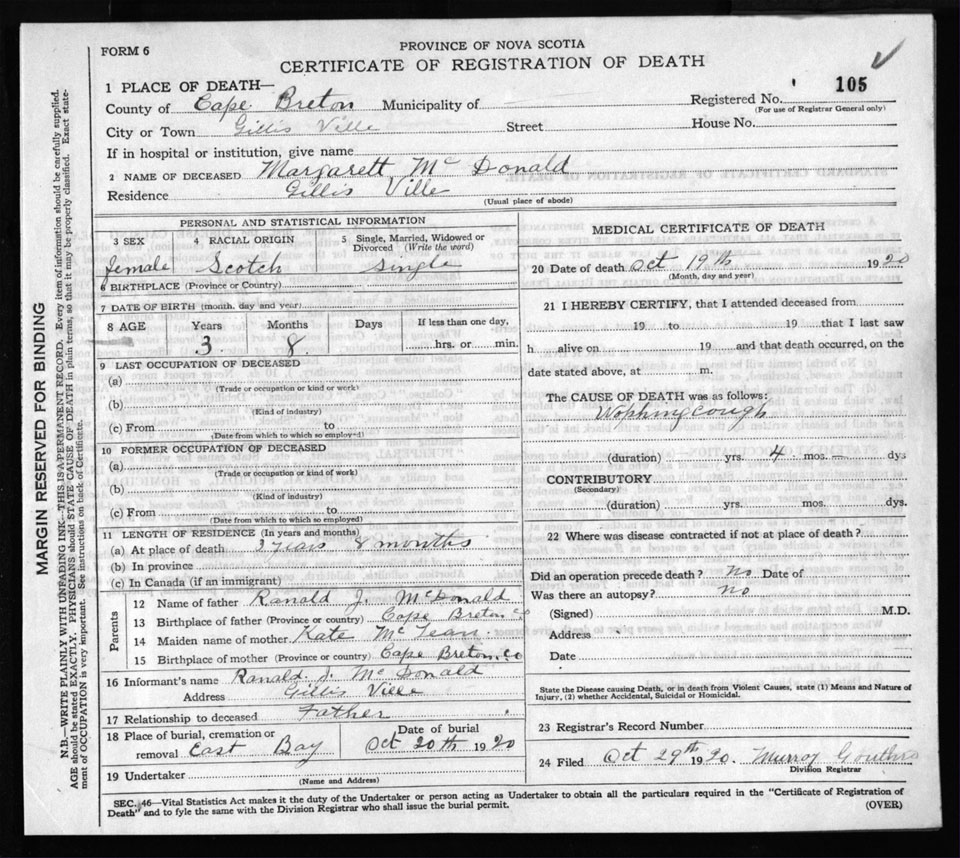 FORM 6
PROVINCE OF NOVA SCOTIA
CERTIFICATE OF REGISTRATION OF DEATH
1 PLACE OF DEATH—
Registered No. 105
(For use of Registrar General only)
County of Cape Breton Municipality of
City or Town Gillis Ville Street House No.
If in hospital or institution, give name
2 NAME OF DECEASED Margarett Mc Donald
Residence Gillis Ville
(Usual place of abode)
PERSONAL AND STATISTICAL INFORMATION
3 SEX 4 RACIAL ORIGIN 5 Single, Married, Widowed or Divorced (Write the word)
female Scotch Single
6 BIRTHPLACE (Province or Country)
7 DATE OF BIRTH (month, day and year)
8 AGE Years Months Days If less than one day,
3 8 hrs. or min.
9 LAST OCCUPATION OF DECEASED
(a)
(Trade or occupation or kind or work)
(b)
(Kind of industry)
(c) From to
(Date from which to which so employed)
10 FORMER OCCUPATION OF DECEASED
(a)
(Trade or occupation or kind of work)
(b)
(Kind of industry)
(c) From to
(Date from which to which so employed)
11 LENGTH OF RESIDENCE (In years and months)
(a) At place of death 3 years 8 months
(b) In province
(c) In Canada (if an immigrant)
Parents
12 Name of father Ranald J. McDonald
13 Birthplace of father (Province or country) Cape Breton co
14 Maiden name of mother Kate Mc Lean
15 Birthplace of mother (Province or country) Cape Breton co
16 Informant's name Ranald J. Mc Donald
Address Gillis Ville
17 Relationship to deceased Father
18 Place of burial, cremation or removal East Bay
Date of burial
Oct 20th 1920
19 Undertaker
(Name and Address)
MEDICAL CERTIFICATE OF DEATH
20 Date of death Oct 19th 1920
(Month, day and year)
21 I HEREBY CERTIFY, that I attended deceased from
19 to 19 that I last saw
h alive on 19 and that death occurred, on the
date stated above, at m.
The CAUSE OF DEATH was as follows:
Wophing cough
(duration) yrs. 4 mos. — dys
CONTRIBUTORY
(Secondary)
(duration) yrs. mos. dys.
22 Where was disease contracted if not at place of death?
Did an operation precede death? no Date of
Was there an autopsy? no
(Signed) M.D.
Address
Date
State the Disease causing Death, or in death from Violent Causes, state (1) Means and Nature of
Injury, (2) whether Accidental, Suicidal or Homicidal.
23 Registrar's Record Number
24 Filed Oct 29th 1920. Murray Gouthro
Division Registrar
SEC. 46—Vital Statistics Act makes it the duty of the Undertaker or person acting as Undertaker to obtain all the particulars required in the "Certificate of Registration of
Death" and to fyle the same with the Division Registrar who shall issue the burial permit. (OVER)
MARGIN RESERVED FOR BINDING
N.B.—WRITE PLAINLY WITH UNFADING INK—THIS IS A PERMANENT RECORD. Every item of information should be carefully supplied.
AGE should be stated EXACTLY. PHYSICIANS should STATE CAUSE OF DEATH in plain terms, so that it may be properly classified. Exact state-
ment of OCCUPATION is very important. See instructions on back of Certificate.